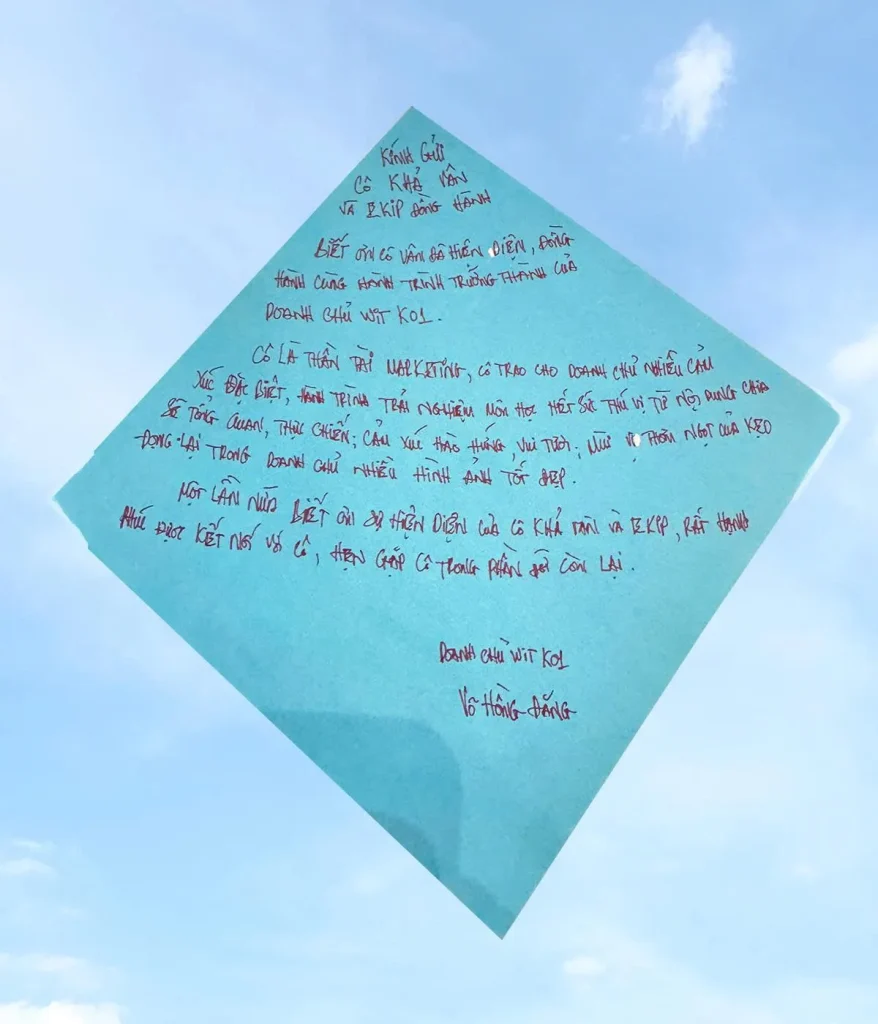 KÍNH GỬI
CÔ KHẢ VÂN
VÀ EKIP ĐỒNG HÀNH
BIẾT ƠN CÔ VÂN ĐÃ HIỆN DIỆN, ĐỒNG
HÀNH CÙNG HÀNH TRÌNH TRƯỞNG THÀNH CỦA
DOANH CHỦ WIT K01.
CÔ LÀ THẦN TÀI MARKETING, CÔ TRAO CHO DOANH CHỦ NHIỀU CẢM
XÚC ĐẶC BIỆT, HÀNH TRÌNH TRẢI NGHIỆM MÔN HỌC HẾT SỨC THÚ VỊ TỪ NỘI DUNG CHIA
SẺ TỔNG QUAN, THỰC CHIẾN; CẢM XÚC HÀO HỨNG, VUI TƯƠI; VỊ NGỌT CỦA KẸO
ĐỌNG LẠI TRONG DOANH CHỦ NHIỀU HÌNH ẢNH TỐT ĐẸP.
MỘT LẦN NỮA BIẾT ƠN SỰ HIỆN DIỆN CỦA CÔ KHẢ VÂN VÀ EKIP, RẤT HẠNH
PHÚC ĐƯỢC KẾT NỐI VỚI CÔ, HẸN GẶP CÔ TRONG PHẦN ĐỜI CÒN LẠI.
DOANH CHỦ WIT K01
VÕ HỒNG ĐĂNG